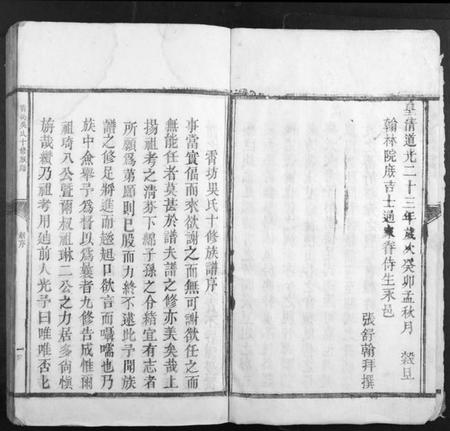 皇清道光二十三年歲次癸卯孟秋月 穀旦
翰林院庶吉士通家眷侍生永邑
張舒翰拜撰
霄坊吳氏十修族譜序
事當實倡而來欲謝之而無可謝欲任之而
無能任者莫甚於譜夫譜之修亦美矣哉上
揚祖考之清芬下綿子孫之令緒宜有志者
所願爲弟節則已殷而力終不逮此予開族
譜之修足將進而趑趄口欲言而囁嚅也乃
族中僉舉予爲督以爲曩者九修告成惟爾
祖琦八公暨爾叔祖琳二公之力居多尙愼
旃哉纘乃祖考用廸前人光予曰唯唯否七
霄坊吳氏十修族譜
新序
一